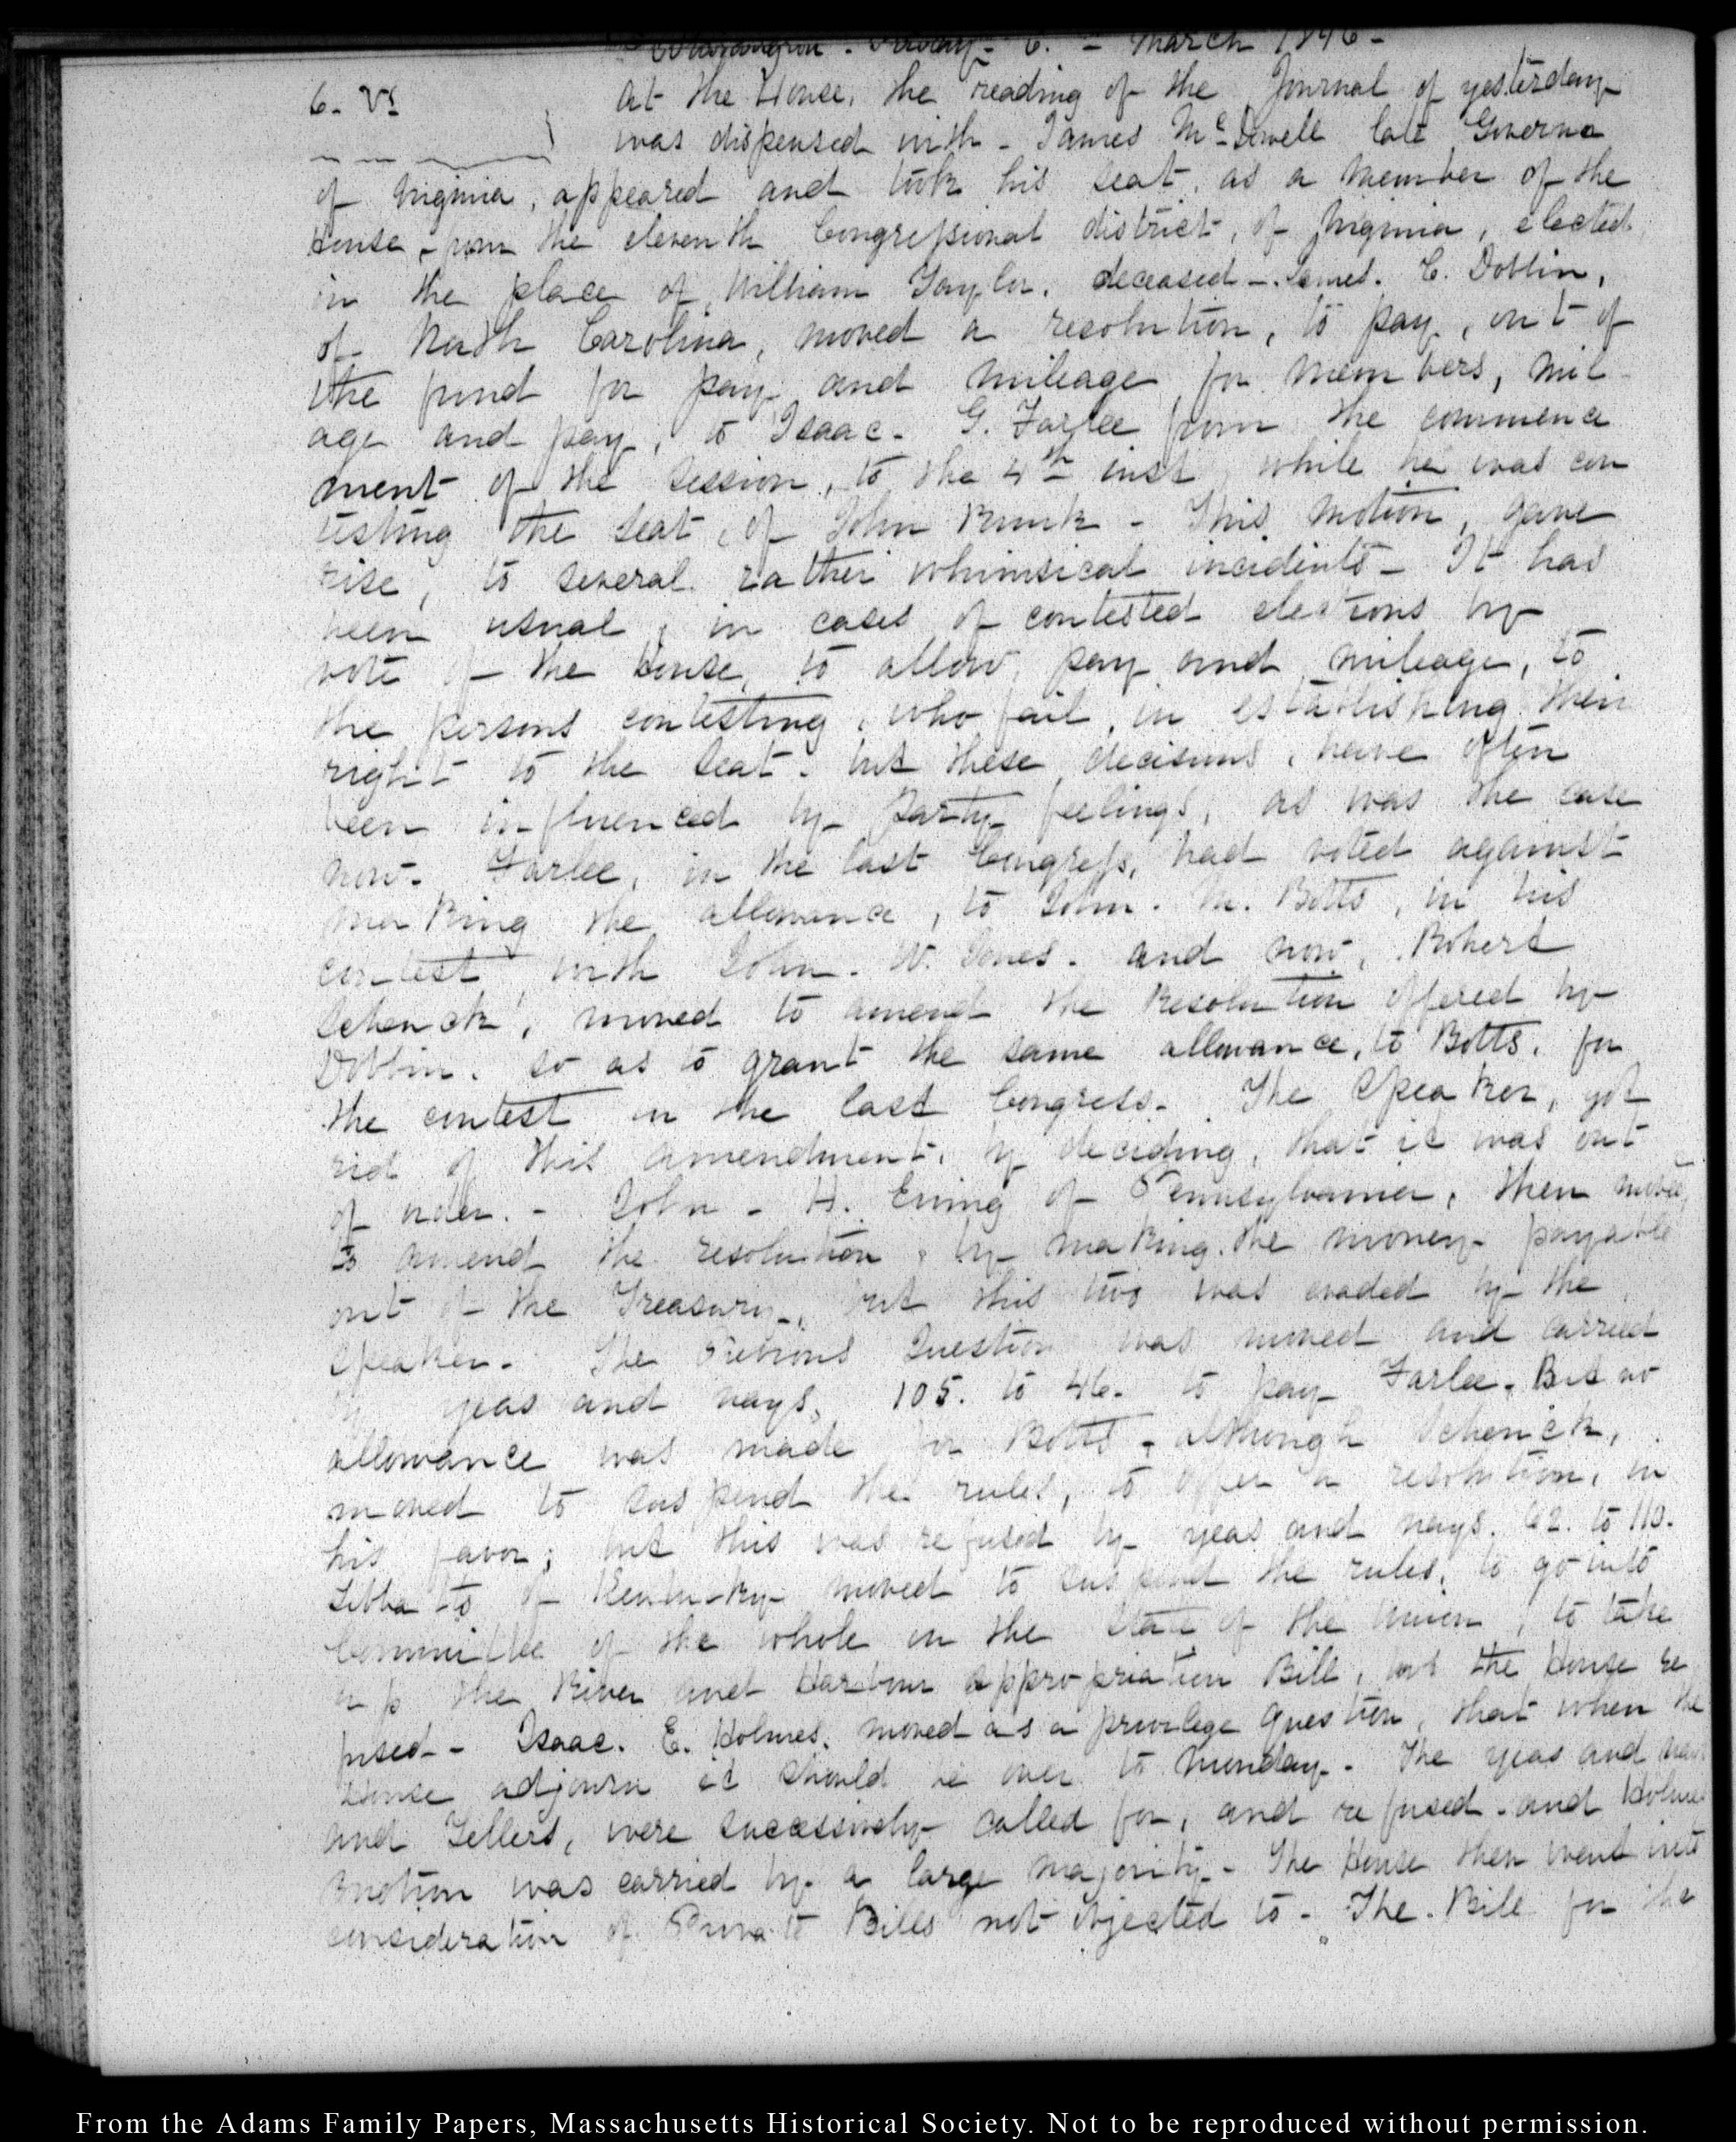 Washington. Friday- 6. - March 1846-
6. VI
At the House, the reading of the Journal of yesterday
was dispensed with - James McDowell late Governor
of Virginia, appeared and took his seat, as a member of the
House, from the eleventh Congressional district, of Virginia, elected
in the place of William Taylor, deceased - James. C. Dobbin,
of North Carolina, moved a resolution, to pay, out of
the fund for pay and mileage for members, mile
age and pay, to Isaac. G. Farlee from the commence
ment of the session, to the 4th inst while he was con
testing the seat, of John Runk - This motion, gave
rise, to several rather whimsical incidents - It has
been usual, in cases of contested elections by
vote of the House, to allow, pay and mileage, to
the persons contesting, who fail, in establishing their
right to the seat. but these decisions, have often
been influenced by party feelings, as was the case
now. Farlee, in the last Congress, had voted against
making the allowance, to John. M. Botts, in his
contest with John. W. Jones. and now, Robert
Schenck, moved to amend the Resolution offered by
Dobbin. so as to grant the same allowance, to Botts, for
the contest in the last Congress. The Speaker, got
rid of this amendment, by deciding, that it was out
of order. - John - H. Ewing of Pennsylvania, then moved
to amend the resolution, by making the money payable
out of the Treasury, but this too was evaded by the
Speaker. The Previous Question was moved and carried
by yeas and nays, 105. to 46. to pay Farlee. But no
allowance was made for Botts - although Schenck,
moved to suspend the rules, to offer a resolution, in
his favor; but this was refused by yeas and nays. 62. to 110.
Tibbatts of Kentucky moved to suspend the rules, to go into
Committee of the whole on the State of the Union, to take
up the River and Harbour appropriation Bill, but the House re
fused - Isaac. E. Holmes, moved as a privilege question, that when the
House adjourn it should be over to Monday. The yeas and nays
and Tellers, were successively called for, and refused - and Holmes
motion was carried by a large majority - The House then went into
consideration of Private Bills not objected to - The Bill for the
From the Adams Family Papers, Massachusetts Historical Society. Not to be reproduced without permission.